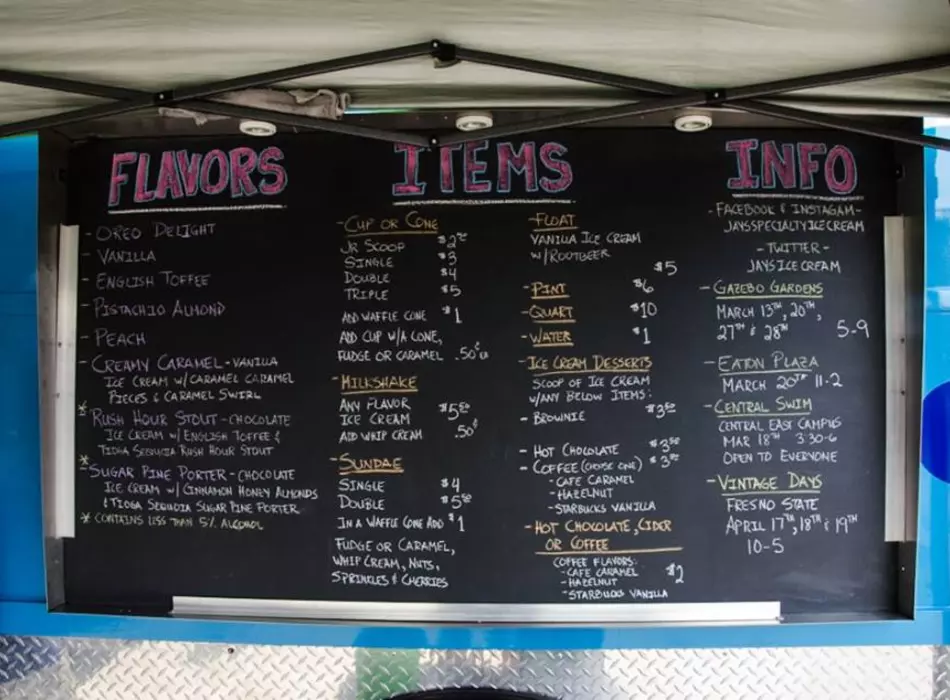 FLAVORS
- OREO DELIGHT
- VANILLA
- ENGLISH TOFFEE
- PISTACHIO ALMOND
- PEACH
- CREAMY CARAMEL - VANILLA
ICE CREAM W/CARAMEL CARAMEL
PIECES & CARAMEL SWIRL
* RUSH HOUR STOUT - CHOCOLATE
ICE CREAM W/ ENGLISH TOFFEE &
TIOGA SEQUOIA RUSH HOUR STOUT
* - SUGAR PINE PORTER - CHOCOLATE
ICE CREAM W/ CINNAMON HONEY ALMONDS
& TIOGA SEQUOIA SUGAR PINE PORTER
* CONTAINS LESS THAN 5% ALCOHOL
ITEMS
- CUP OR CONE
JR SCOOP
SINGLE $3
DOUBLE $4
TRIPLE $5
ADD WAFFLE CONE $1
ADD CUP W/A CONE,
FUDGE OR CARAMEL .50¢
- MILKSHAKE
ANY FLAVOR
ICE CREAM $5.50
ADD WHIP CREAM .50¢
- SUNDAE
SINGLE $4
DOUBLE $5.50
IN A WAFFLE CONE ADD $1
FUDGE OR CARAMEL,
WHIP CREAM, NUTS,
SPRINKLES & CHERRIES
- FLOAT
VANILLA ICE CREAM
W/ROOTBEER
$5
- PINT $6
- QUART $10
- WATER $1
- ICE CREAM DESSERTS
SCOOP OF ICE CREAM
W/ANY BELOW ITEMS:
- BROWNIE $3.50
- HOT CHOCOLATE $3.50
- COFFEE (CHOOSE ONE) $3.50
- CAFE CARAMEL
- HAZELNUT
- STARBUCKS VANILLA
- HOT CHOCOLATE, CIDER
OR COFFEE
COFFEE FLAVORS:
- CAFE CARAMEL $2
- HAZELNUT
- STARBUCKS VANILLA
INFO
- FACEBOOK & INSTAGAM -
JAYSSPECIALTYICECREAM
- TWITTER -
JAYSICECREAM
- GAZEBO GARDENS
MARCH 13TH, 20TH,
27TH & 28TH 5-9
- EATON PLAZA
MARCH 20TH 11-2
- CENTRAL SWIM
CENTRAL EAST CAMPUS
MAR 18TH 3:30-6
OPEN TO EVERYONE
- VINTAGE DAYS
FRESNO STATE
APRIL 17TH, 18TH & 19TH
10-5